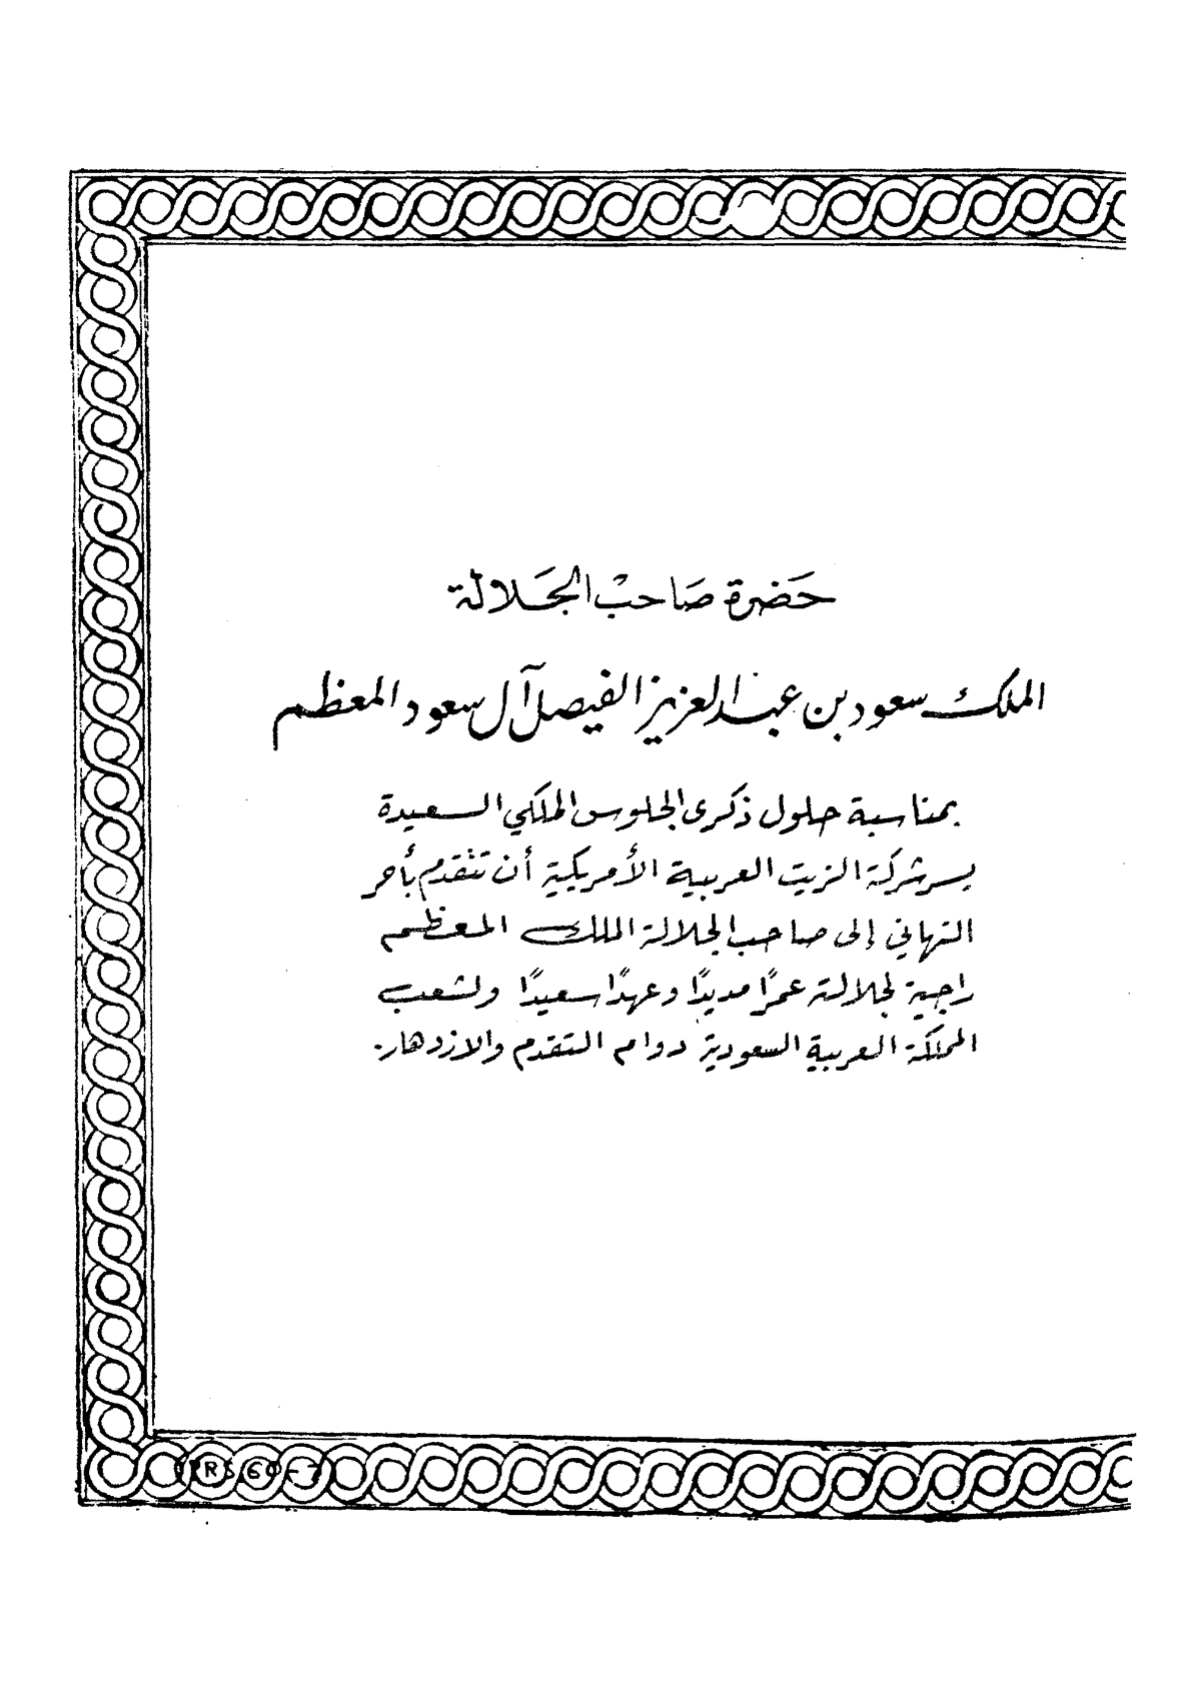 حَضرة صَاحبْ الجَلالة
الملك سعود بن عبد العزيز الفيصل آل سعود المعظم
بمناسبة حلول ذكرى الجلوس الملكي السعيدة
يسر شركة الزيت العربية الأمريكية أن تتقدم بأحر
التهاني إلى صاحب الجلالة الملك المعظم
راجية لجلالته عمرًا مديدًا وعهدًا سعيدًا ولشعب
المملكة العربية السعودية دوام التقدم والازدهار.